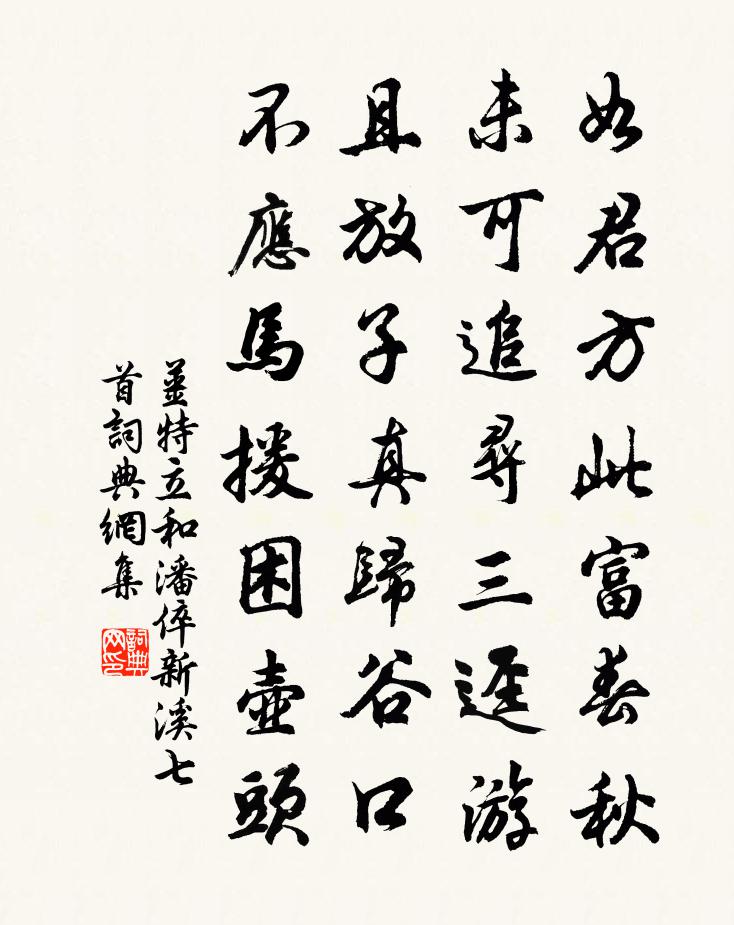 如君方此富春秋
未可追尋三逕游
且放子真歸谷口
不應馬援困壺頭
薑特立和潘倅新溪七
首詞典網集
詞典网印